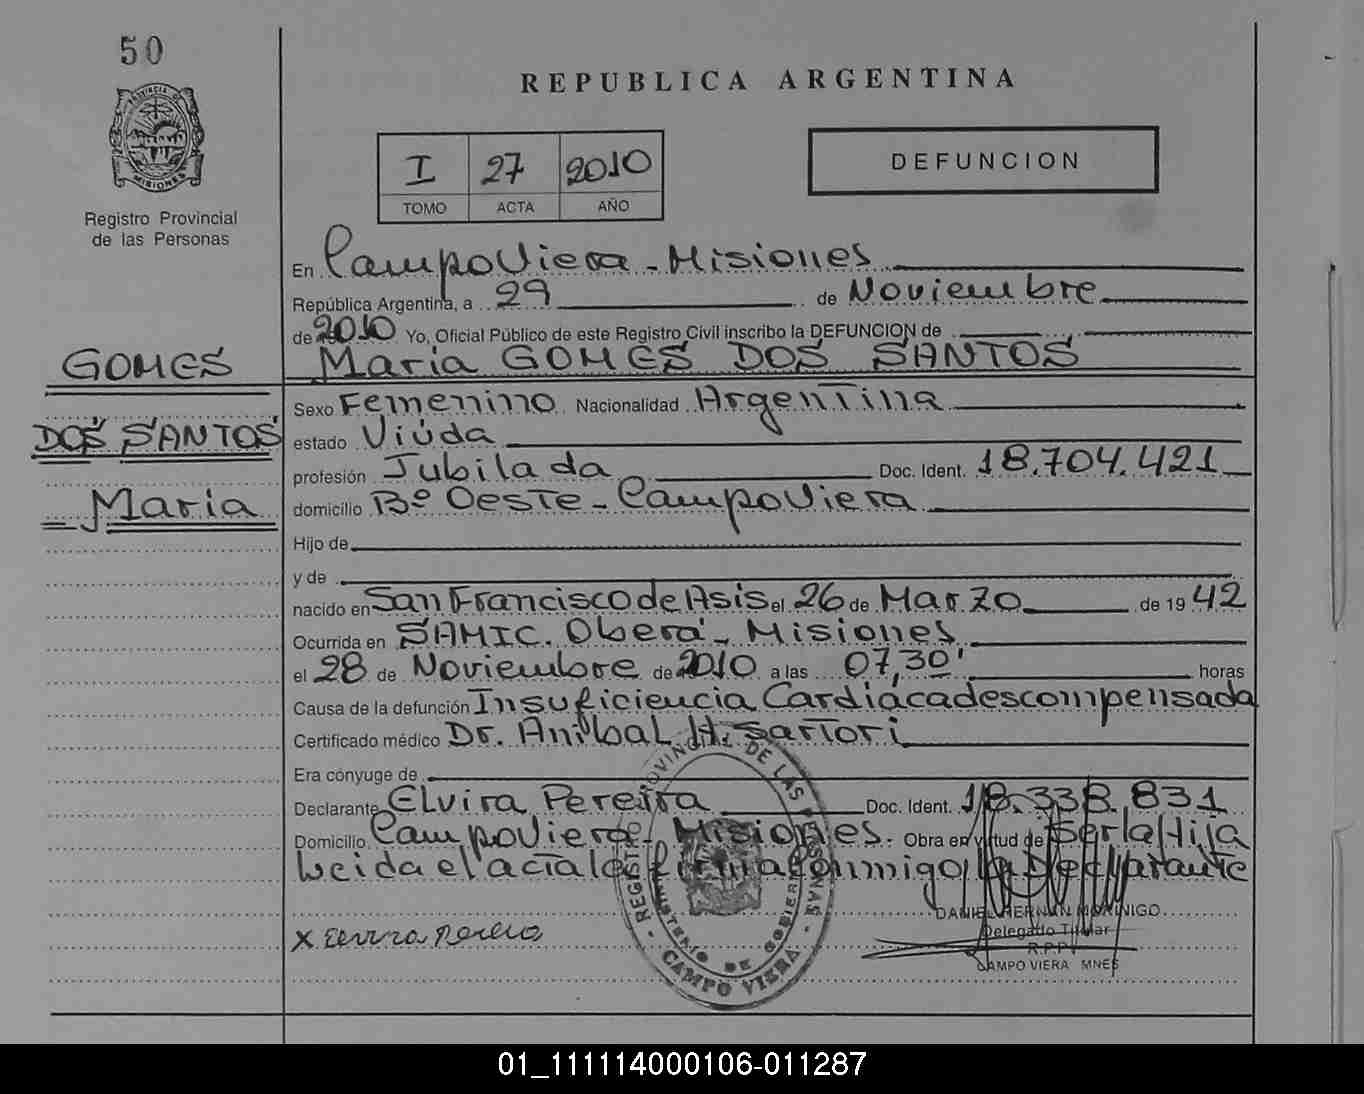 50
REPUBLICA ARGENTINA
PROVINCIA DE MISIONES
Registro Provincial
de las Personas
I 27 2010
TOMO ACTA AÑO
DEFUNCION
En Campo Viera - Misiones
República Argentina, a 29 de Noviembre
de 2010 Yo, Oficial Público de este Registro Civil inscribo la DEFUNCION de
GOMES
DOS SANTOS
Maria
Maria GOMES DOS SANTOS
Sexo Femenino Nacionalidad Argentina
estado Viúda
profesión Jubilada Doc. Ident. 18.704.421
domicilio Bº Oeste - Campo Viera
Hijo de
y de
nacido en San Francisco de Asis el 26 de Marzo de 19 42
Ocurrida en SAMIC. Oberá - Misiones
el 28 de Noviembre de 2010 a las 07,30' horas
Causa de la defunción Insuficiencia Cardiáca descompensada
Certificado médico Dr. Anibal H. Sartori
Era cónyuge de
Declarante Elvira Pereira Doc. Ident. 18.338.831
Domicilio Campo Viera - Misiones. Obra en virtud de ser la Hija
Leida el acta la firma conmigo la Declarante
REGISTRO PROVINCIAL DE LAS PERSONAS
MINISTERIO DE GOBIERNO
CAMPO VIERA
DANIEL HERNAN MORINIGO
Delegado Titular
R.P.P.
CAMPO VIERA MNES
X Elvira Pereira
01_111114000106-011287